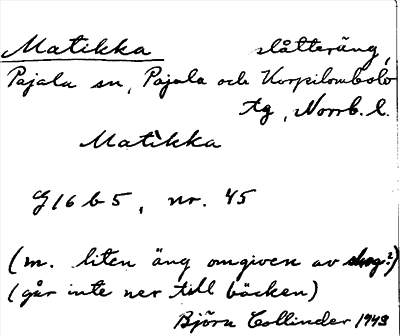 Matikka slåtteräng,
Pajala sn, Pajala och Korpilombolo
tg, Norrb. l.
Matikka
G16 b5, nr. 45
(m. liten äng omgiven av skog?)
(går inte ner till bäcken)
Björn Collinder 1943